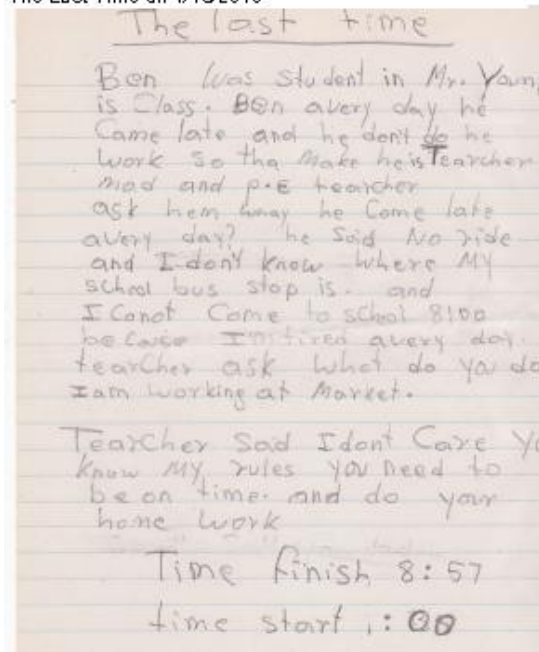 The last time
Ben was student in Mr. Young
is Class. Ben avery day he
Came late and he don't do he
work so tha make he is Tearcher
mad and p.E tearcher
ask hem way he Come late
avery day? he Said No ride
and I don't know where My
school bus stop is. and
I Canot Come to school 8:00
because I'm tired avery day.
tearcher ask what do you do
I am working at Market.
Tearcher Said I dont Care Yo
know My rules you need to
be on time. and do your
home work
Time finish 8:57
time start